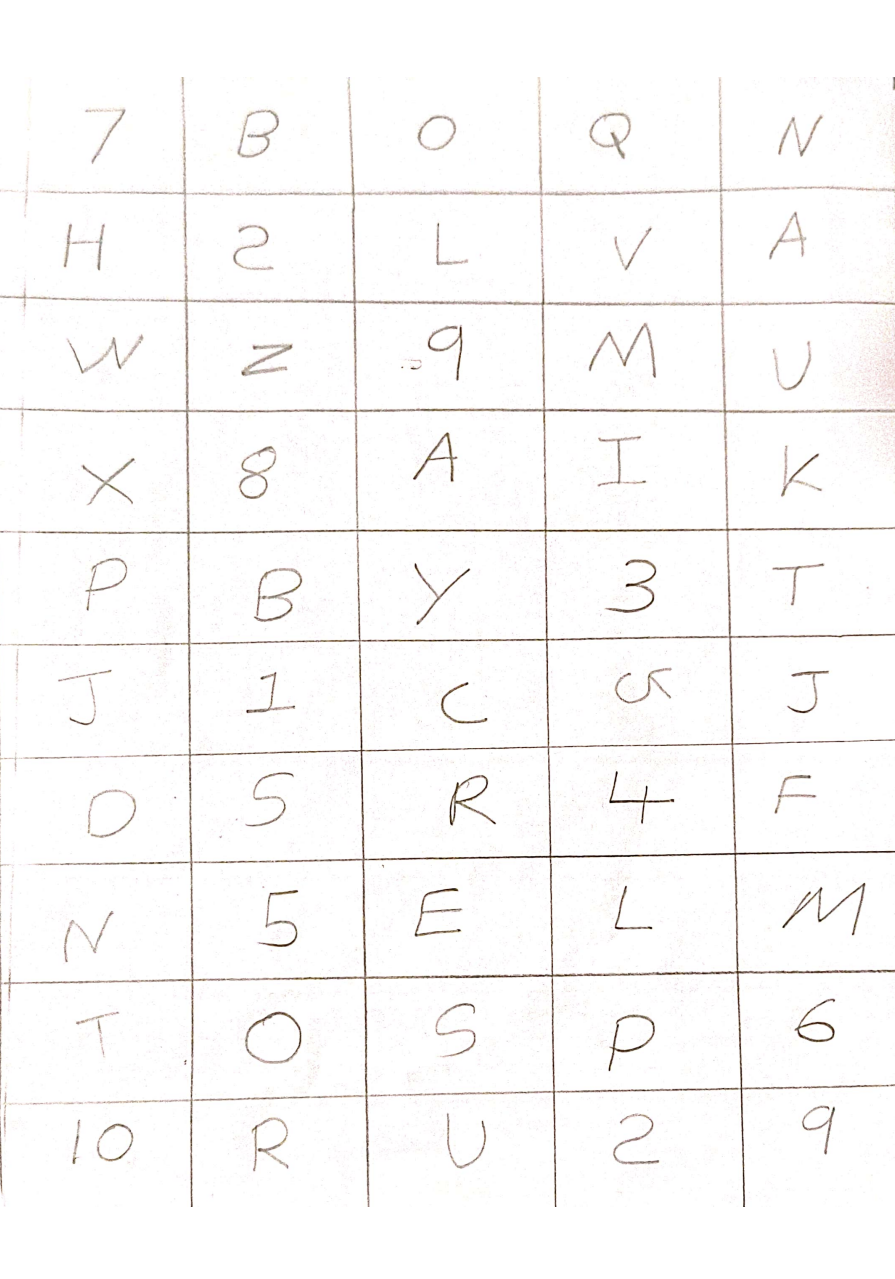 7 B O Q N
H 2 L V A
W Z 9 M U
X 8 A I K
P B Y 3 T
J 1 C J
D S R 4 F
N 5 E L M
T O S P 6
10 R U 2 9